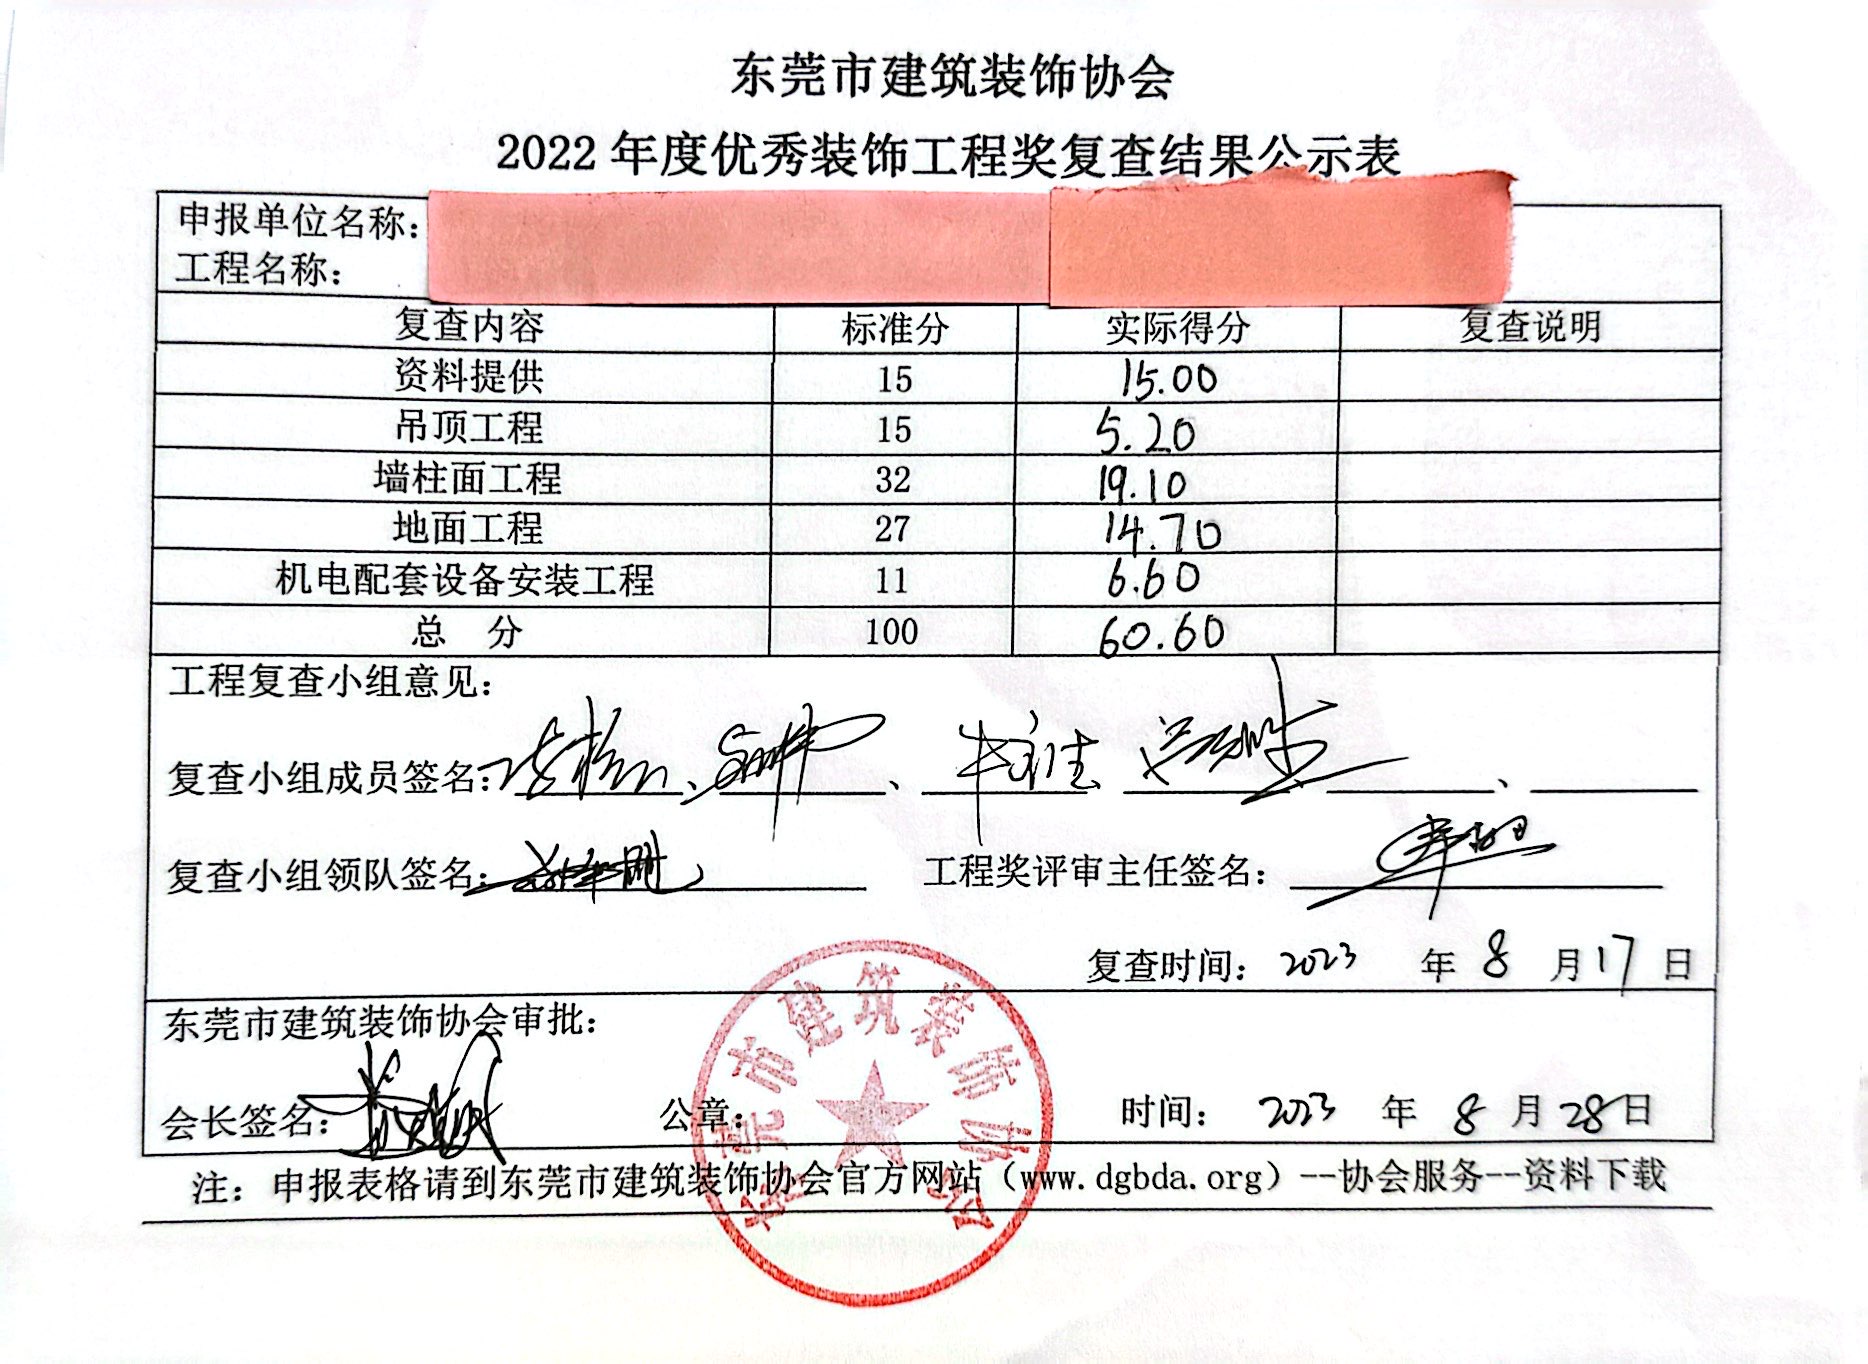 东莞市建筑装饰协会
2022 年度优秀装饰工程奖复查结果公示表
申报单位名称：
工程名称：
复查内容 标准分 实际得分 复查说明
资料提供 15 15.00
吊顶工程 15 5.20
墙柱面工程 32 19.10
地面工程 27 14.70
机电配套设备安装工程 11 6.60
总 分 100 60.60
工程复查小组意见：
复查小组成员签名： 、 、 、
复查小组领队签名： 工程奖评审主任签名：
复查时间： 2023 年 8 月 17 日
东莞市建筑装饰协会审批：
会长签名： 公章： 时间： 2023 年 8 月 28 日
东莞市建筑装饰协会
注：申报表格请到东莞市建筑装饰协会官方网站（www.dgbda.org）--协会服务--资料下载